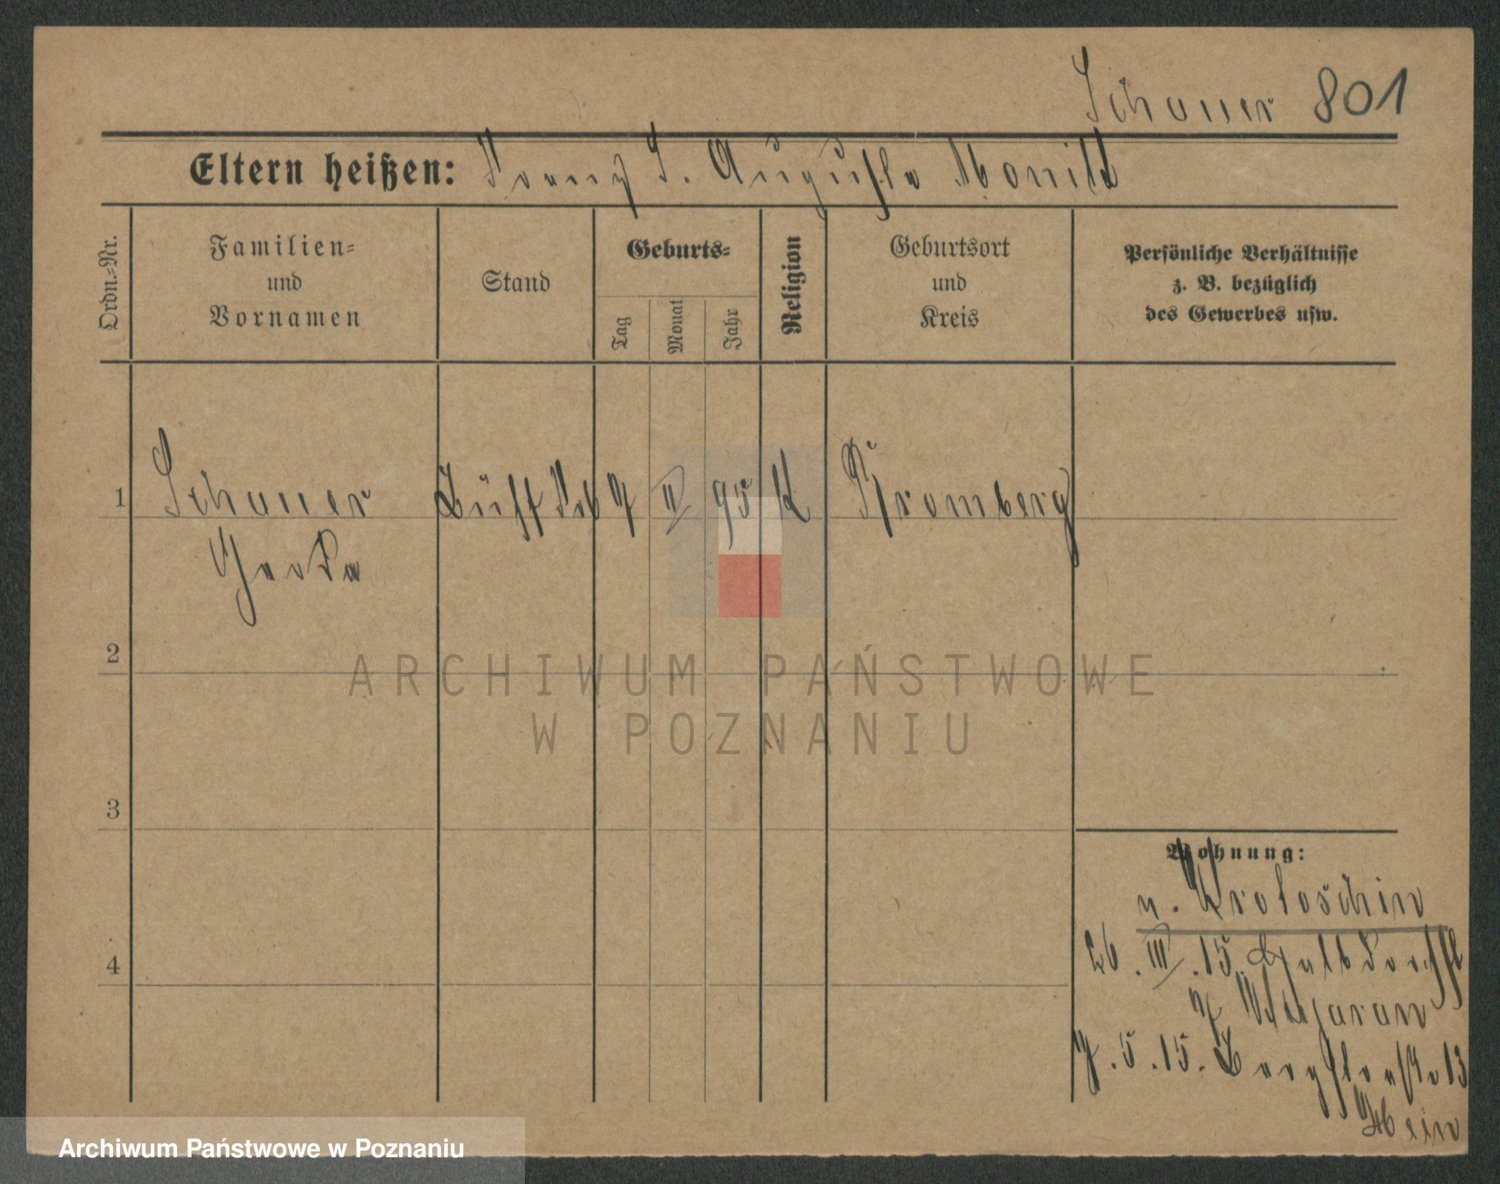 Schauer 801
Eltern heißen: Franz S. Augusta
Ordn.-Nr.
Familien-
und
Vornamen
Stand
Geburts-
Tag
Monat
Jahr
Religion
Geburtsort
und
Kreis
Persönliche Verhältnisse
z. B. bezüglich
des Gewerbes usw.
1 Schauer 9 II 95 K Bromberg
2
3
4
ARCHIWUM PAŃSTWOWE
W POZNANIU
Wohnung:
n. Krotoschin
26. III. 15.
5. 15. Bergstraße 13
Archiwum Państwowe w Poznaniu